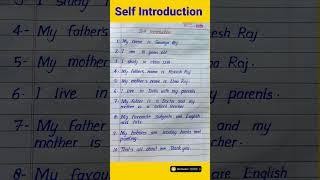 Self Introduction
Self Introduction
1. My name is Raj.
2. I am years old.
3. I study in class
4. My father's name is Rakesh Raj
5. My mother's name is Raj.
6. I live in Delhi with my parents.
7. My father is a Doctor and my
mother is a school teacher.
8. My favourite subjects are English
and
9. My hobbies are reading books and
painting.
10. That's all about me. Thank you.
I study
4- My father
5- My mother
6- I live in
7- My Father
mother is
8- My Favou
Raj
Raj.
parents.
my
English